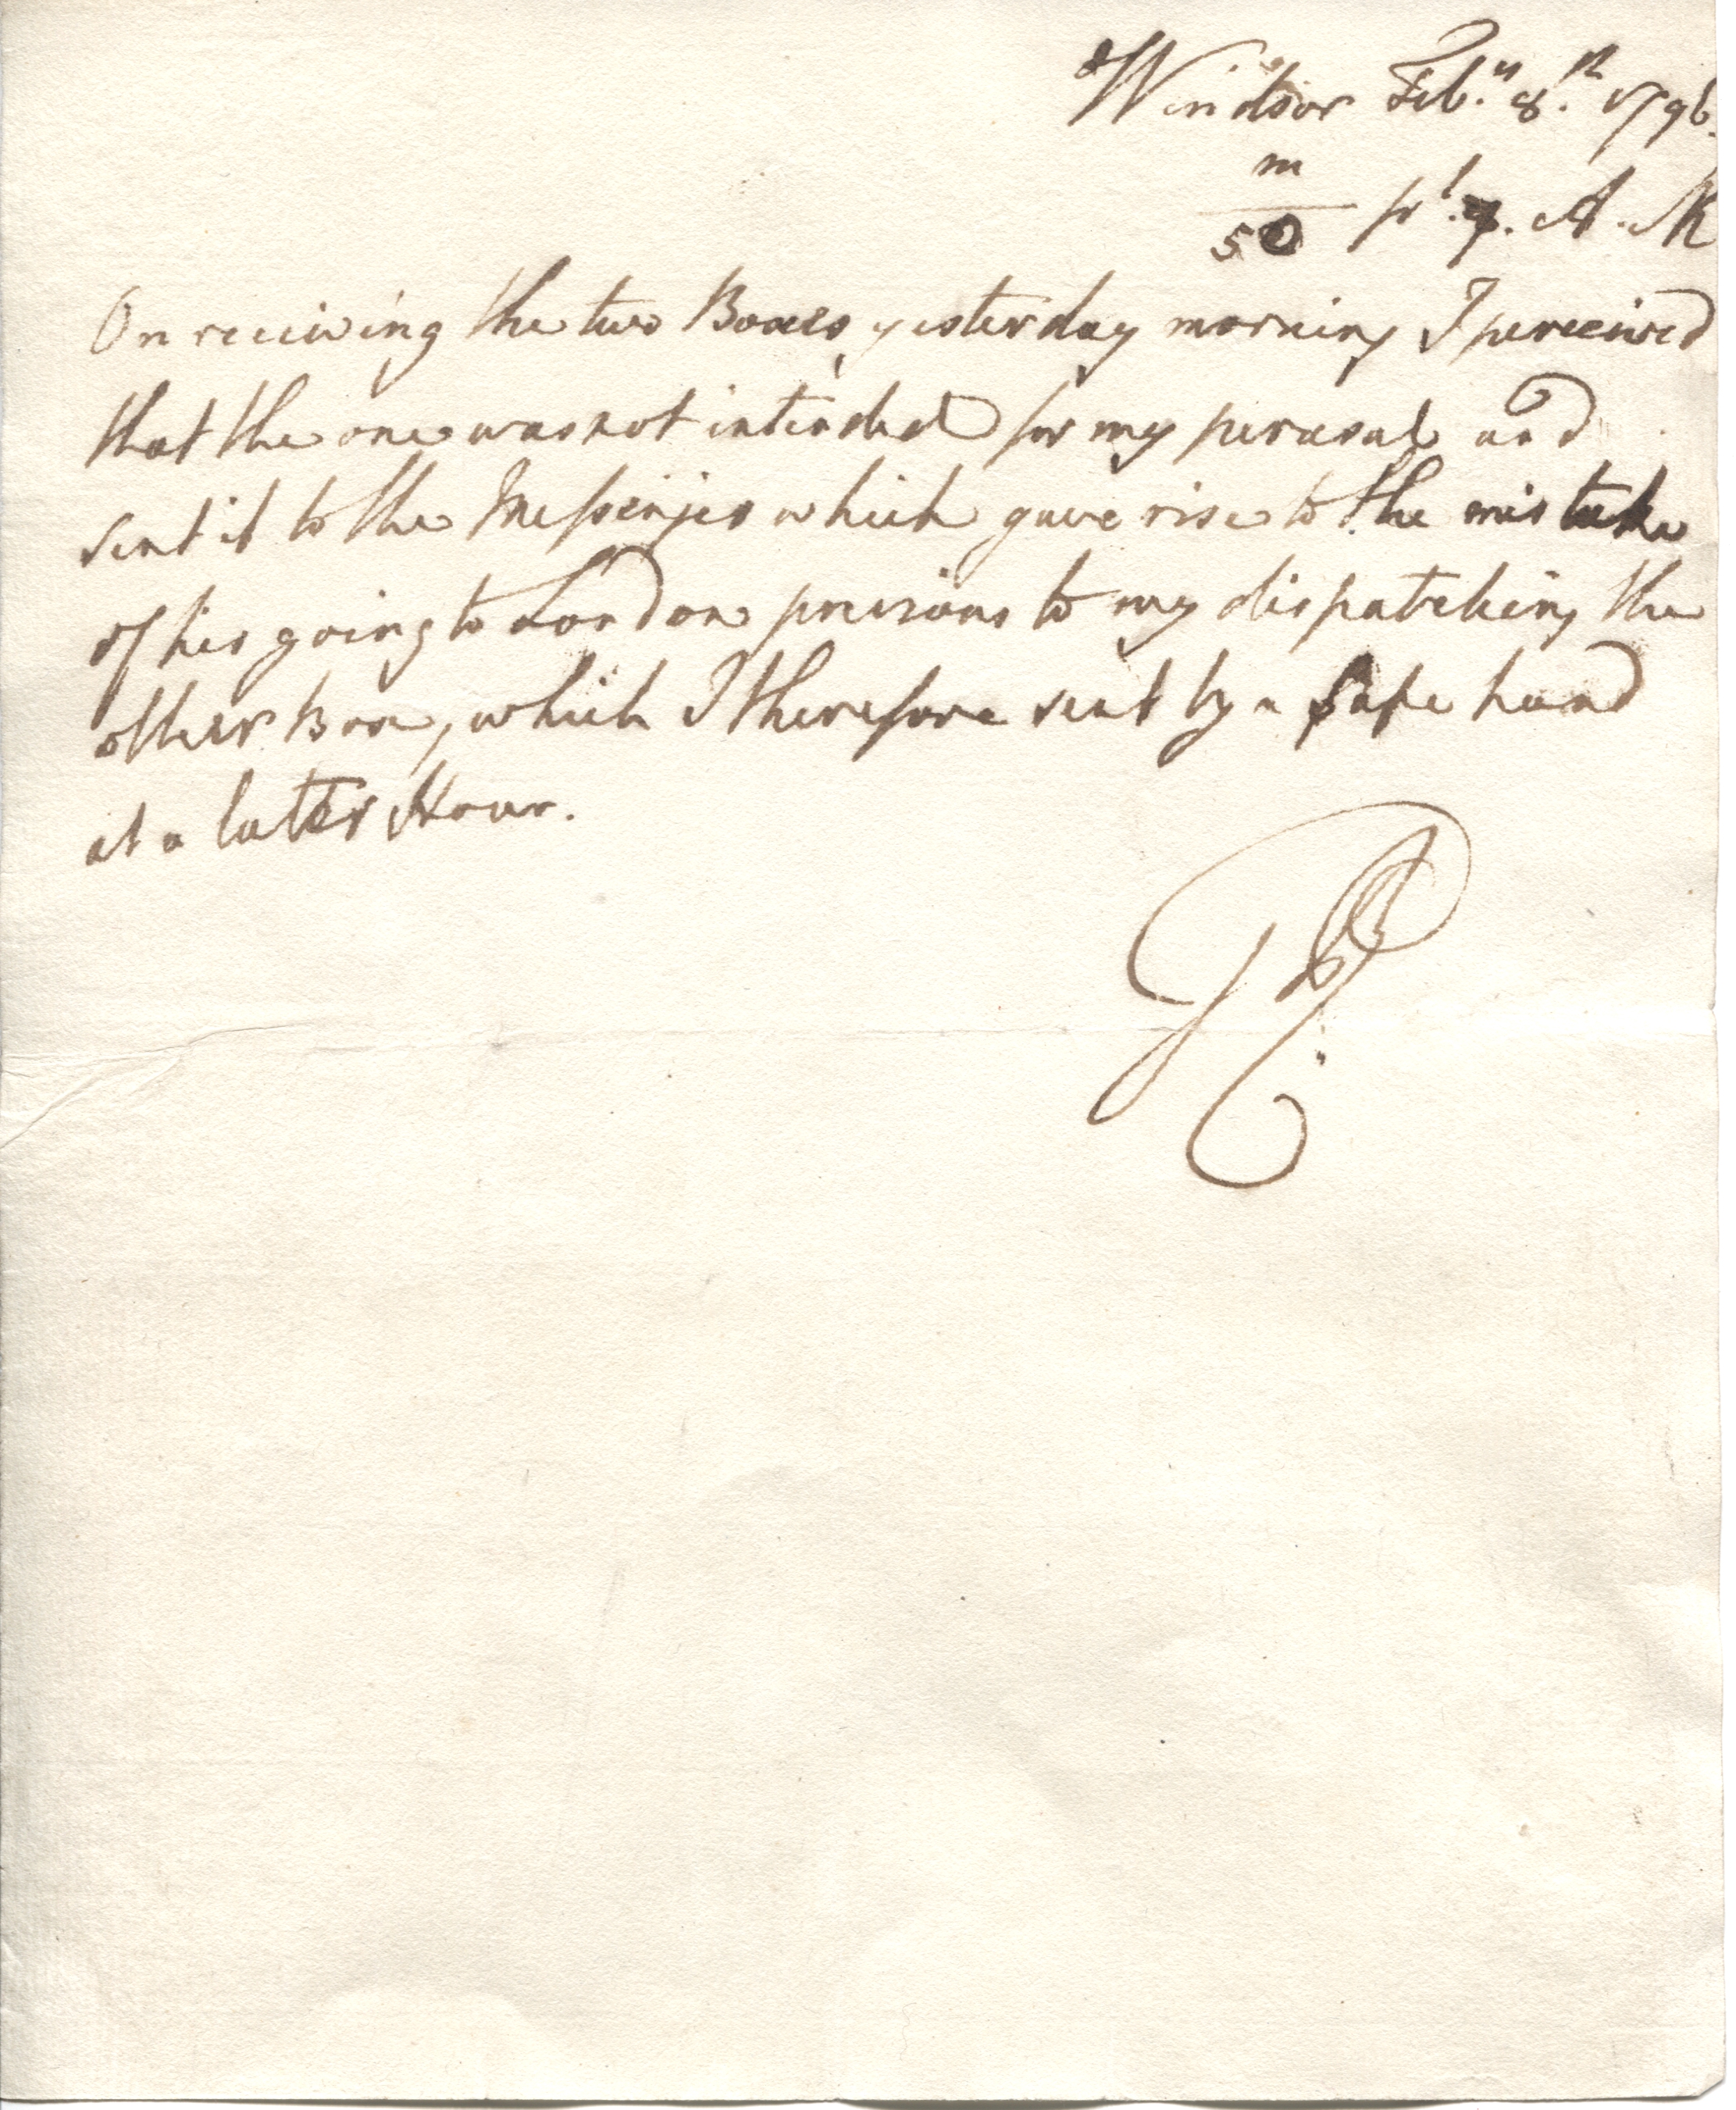 Windsor Feb.ry 8.th 1796.
m
50 pt. 7. A.M
On receiving the two Boxes, yesterday morning I perceived
that the one was not intended for my perusal and
sent it to the Messenger which gave rise to the mistake
of his going to London previous to my dispatching the
other Box, which I therefore sent by a safe hand
at a later Hour.
GR.